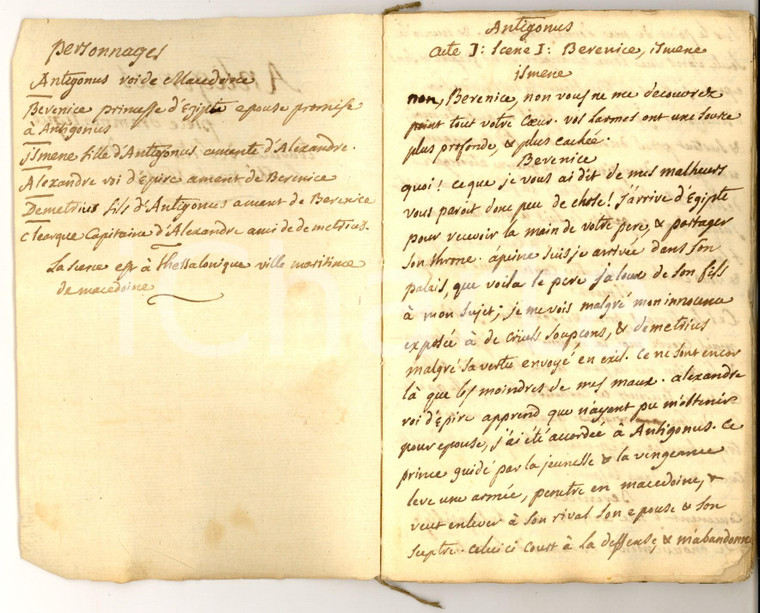 personnages
Antigonus roi de Macedoine
Berenice princesse d'Egipte epouse promise
à Antigonus
ismene fille d'Antigonus amente d'Alexandre.
Alexandre roi d'Epire ament de Berenice
Demetrius fils d'Antigonus ament de Berenice
Clearque Capitaine d'Alexandre ami de demetrius.
La scene est à thessalonique ville maritime
de macedoine
Antigonus
acte I: scene I: Berenice, ismene
ismene
non, Berenice, non vous ne me découvrez
point tout votre Cœur. vos larmes ont une source
plus profonde, & plus cachée.
Berenice
quoi! ce que je vous ai dit de mes malheurs
vous paroit donc peu de chose! j'arrive d'Egipte
pour recevoir la main de votre pere, & partager
son throne. àpeine suis je arrivée dans son
palais, que voila le pere jaloux de son fils
à mon sujet; je me vois malgré mon innocence
exposée à de cruels soupcons, & demetrius
malgré sa vertu envoyé en exil. Ce ne sont encor
là que les moindres de mes maux. alexandre
roi d'Epire apprend que n'ayent pu m'obtenir
pour epouse, j'ai été accordée à Antigonus. Ce
prince guidé par la jeunesse & la vengeance
leve une armée, penetre en macedoine, &
veut enlever à son rival son epouse & son
sceptre. celui ci court à la deffense, & m'abandonne